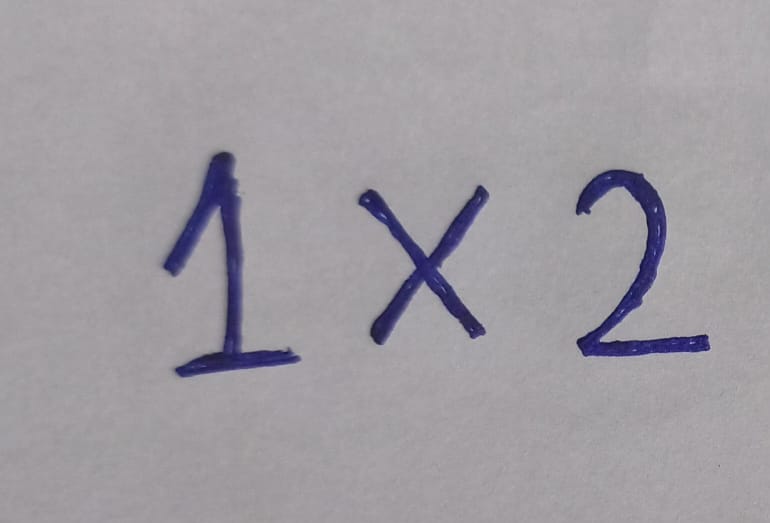 1 × 2